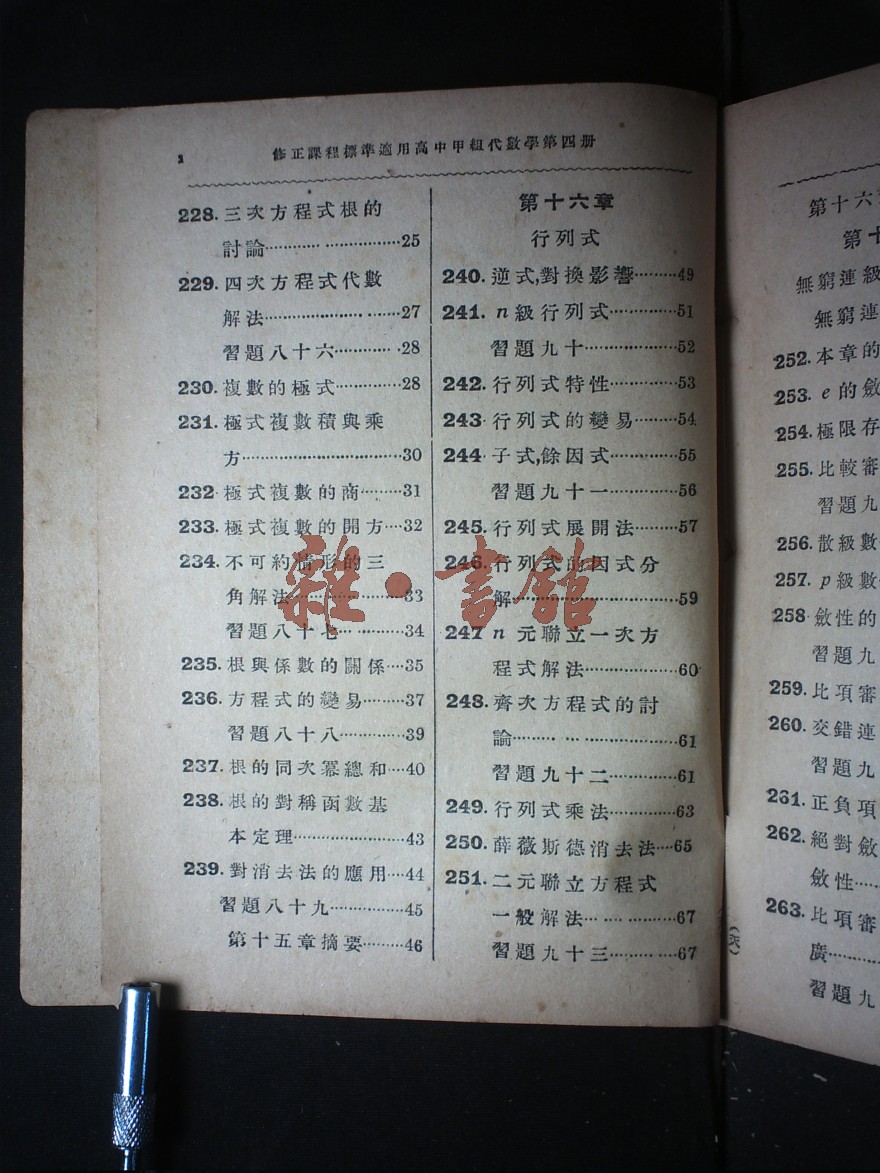 修正課程標準適用高中甲組代數學第四册
228. 三次方程式根的
討論…………………25
229. 四次方程式代數
解法…………………27
習題八十六…………28
230. 複數的極式…………28
231. 極式複數積與乘
方……………………30
232. 極式複數的商………31
233. 極式複數的開方…32
234. 不可約情形的三
角解法………………33
習題八十七…………34
235. 根與係數的關係…35
236. 方程式的變易………37
習題八十八…………39
237. 根的同次冪總和…40
238. 根的對稱函數基
本定理………………43
239. 對消去法的應用…44
習題八十九…………45
第十五章摘要………46
第十六章
行列式
240. 逆式,對換影響………49
241. n級行列式…………51
習題九十……………52
242. 行列式特性…………53
243. 行列式的變易………54
244. 子式,餘因式…………55
習題九十一…………56
245. 行列式展開法………57
246. 行列式的因式分
解……………………59
247. n元聯立一次方
程式解法……………60
248. 齊次方程式的討
論……………………61
習題九十二…………61
249. 行列式乘法…………63
250. 薛薇斯德消去法…65
251. 二元聯立方程式
一般解法……………67
習題九十三…………67
第十六
第十
無窮連級
無窮連
252. 本章的
253. e的斂
254. 極限存
255. 比較審
習題九
256. 散級數
257. p級數
258. 斂性的
習題九
259. 比項審
260. 交錯連
習題九
261. 正負項
262. 絕對斂
斂性……
263. 比項審
廣…………
習題九
雜·書館